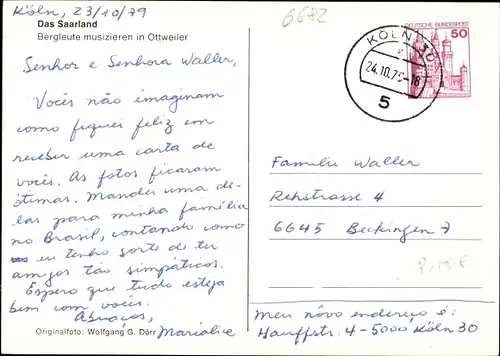 Köln, 23/10/79
6682
Das Saarland
Bergleute musizieren in Ottweiler
Senhor e Senhora Waller,
Vocês não imaginam
como fiquei feliz em
receber uma carta de
vocês. As fotos ficaram
ótimas. Mandei uma de-
las para minha família
no Brasil, contando como
eu tenho sorte de ter
amigos tão simpáticos.
Espero que tudo esteja
bem com vocês.
Abraços,
Marialice
Originalfoto: Wolfgang G. Dörr
DEUTSCHE BUNDESPOST
50
KÖLN 30
24.10.79-18
5
Familie Waller
Rehstrasse 4
6645 Beckingen 7
Meu nôvo endereço é:
Hauffstr. 4-5000 Köln 30